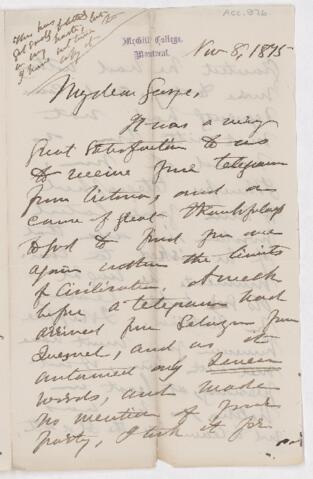 This has
got
in my haste, but
I have not time
to copy it
Acc. 876
McGill College,
Montreal.
Nov 8, 1875
My dear George,
It was a very
great satisfaction to us
to receive your telegram
from Victoria, and a
cause of great thankfulness
to God to find you once
again within the limits
of Civilization. A week
before a telegram had
arrived from Selwyn from
Quesnel, and as it
contained only seven
words, and made
no mention of your
party, I took it for